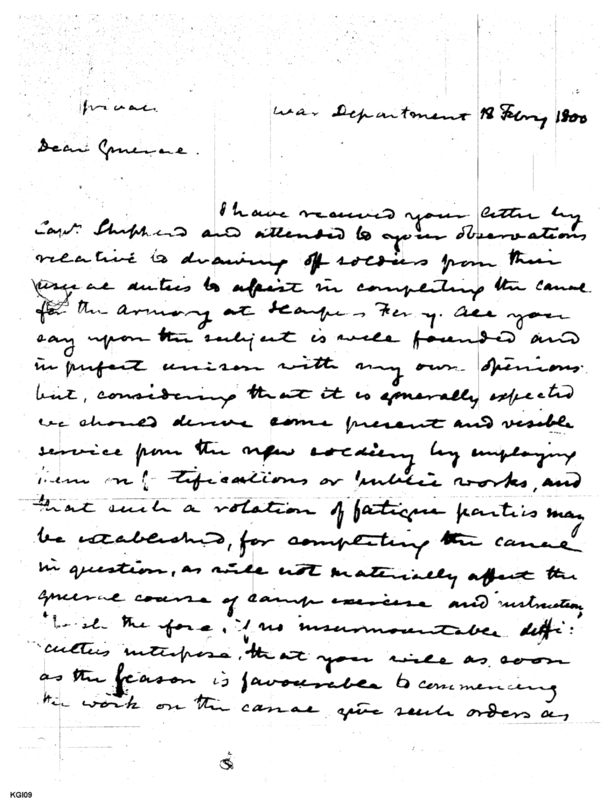 private
War Department 18 Febry 1800
Dear General.
I have received your letter by
Capn. Shepherd and attended to your observations
relative to drawing off soldiers from their
usual duties to assist in completing the canal
for the Armory at Harpers Ferry. All you
say upon the subject is well founded and
in perfect unison with my own opinions.
but, considering that it is generally expected
we should derive some present and visible
service from the new soldiery by employing
them on fortifications or public works, and
that such a rotation of fatigue parties may
be established, for completing the canal
in question, as will not materially affect the
general course of camp exercise and instruction,
I wish therefore, if no insurmountable diffi:
culties interpose, that you will as soon
as the season is favourable to commencing
the work on the canal give such orders as
KGI09